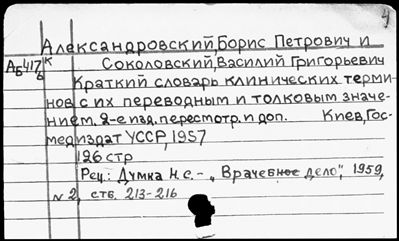 4
Александровский, Борис Петрович и
АБ417 к Соколовский, Василий Григорьевич
6 Краткий словарь клинических терми-
нов с их переводным и толковым значе-
нием. 2-е изд. пересмотр. и доп. Киев, Гос-
медиздат УССР, 1957
126 стр
Рец.: Думка Н.С. – „Врачебное дело", 1959,
№ 2, стб. 213-216